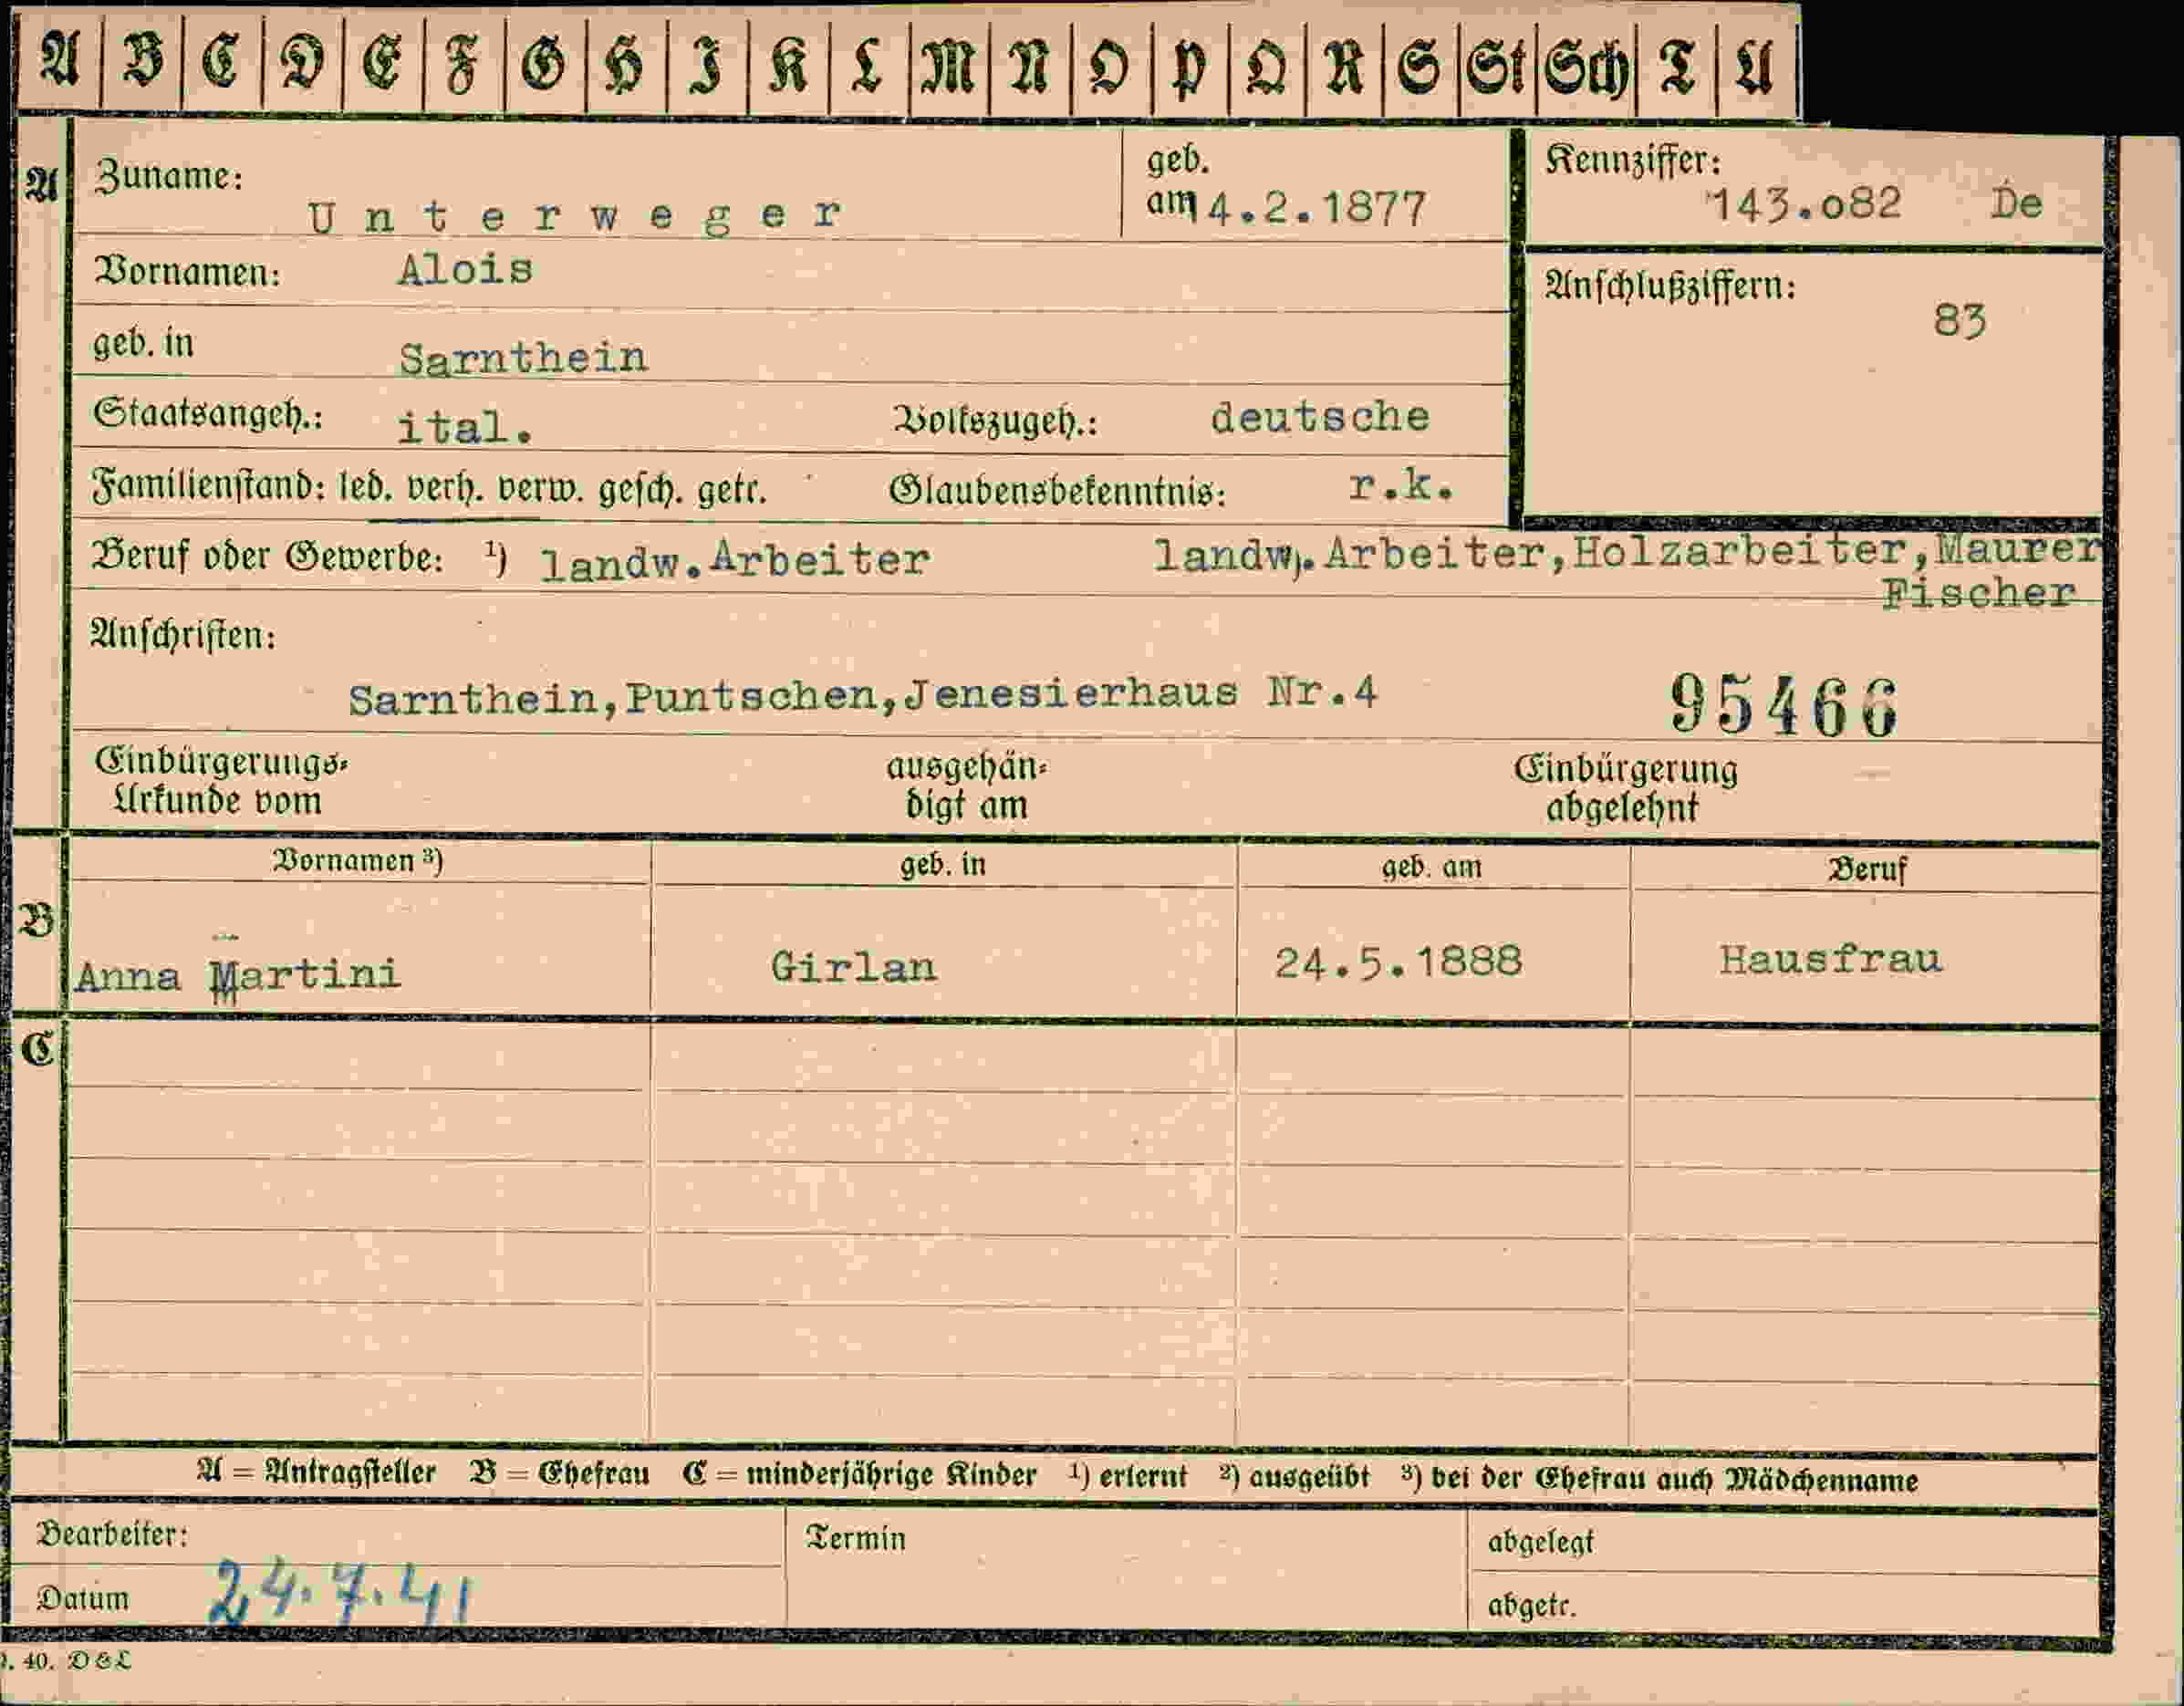 A B C D E F G H I K L M N O P Q R S St Sch T U
A Zuname: Unterweger geb. am 4.2.1877 Kennziffer: 143.o82 De
Vornamen: Alois Anschlußziffern: 83
geb. in Sarnthein
Staatsangeh.: ital. Volkszugeh.: deutsche
Familienstand: led. verh. verw. gesch. getr. Glaubensbekenntnis: r.k.
Beruf oder Gewerbe: ¹) landw.Arbeiter landw.Arbeiter,Holzarbeiter,Maurer
Fischer
Anschriften:
Sarnthein,Puntschen,Jenesierhaus Nr.4 95466
Einbürgerungs- ausgehän- Einbürgerung
Urkunde vom digt am abgelehnt
Vornamen ³) geb. in geb. am Beruf
B
Anna Martini Girlan 24.5.1888 Hausfrau
C
A = Antragsteller B = Ehefrau C = minderjährige Kinder ¹) erlernt ²) ausgeübt ³) bei der Ehefrau auch Mädchenname
Bearbeiter: Termin abgelegt
Datum 24.7.41 abgetr.
40. DEL